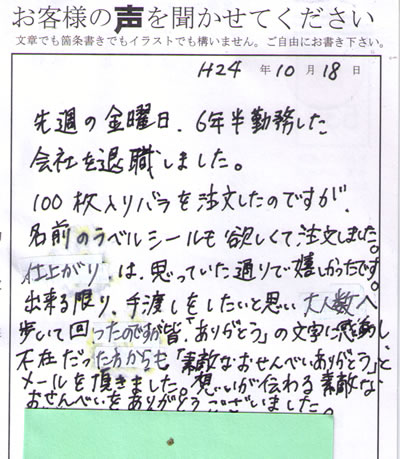 お客様の声を聞かせてください
文章でも箇条書きでもイラストでも構いません。ご自由にお書き下さい。
H24 年 10 月 18 日
先週の金曜日、6年半勤務した
会社を退職しました。
100枚入りバラを注文したのですが、
名前のラベルシールも欲しくて注文しました。
仕上がりは、思っていた通りで嬉しかったです。
出来る限り、手渡しをしたいと思い大人数へ
歩いて回ったのですが皆、「ありがとう」の文字に感動し、
不在だった方からも「素敵なおせんべいありがとう」と
メールを頂きました。想いが伝わる素敵な
おせんべいをありがとうございました。